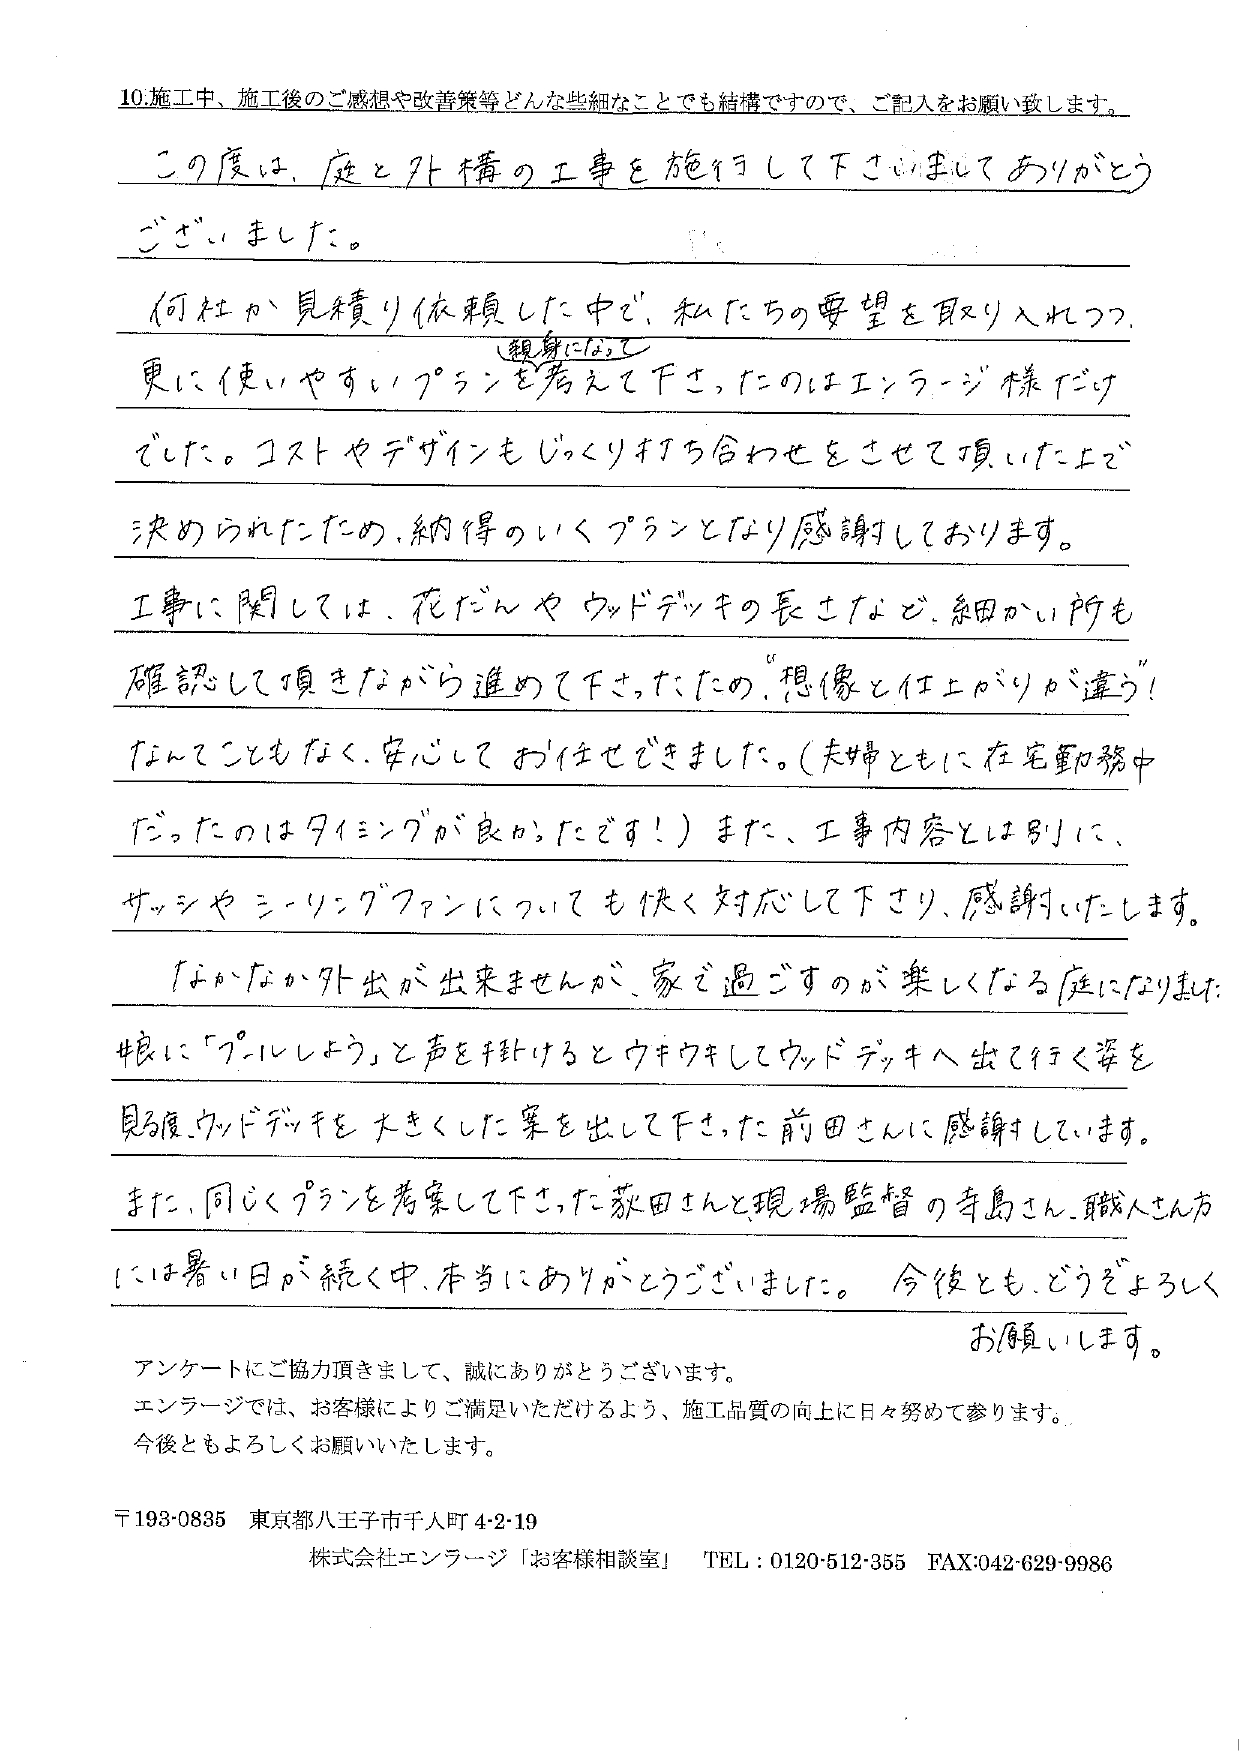 10.施工中、施工後のご感想や改善策等どんな些細なことでも結構ですので、ご記入をお願い致します。
この度は、庭と外構の工事を施行して下さいましてありがとう
ございました。
何社か見積り依頼した中で、私たちの要望を取り入れつつ、
親身になって
更に使いやすいプランを考えて下さったのはエンラージ様だけ
でした。コストやデザインもじっくり打ち合わせをさせて頂いた上で
決められたため、納得のいくプランとなり感謝しております。
工事に関しては、花だんやウッドデッキの長さなど、細かい所も
確認して頂きながら進めて下さったため、“想像と仕上がりが違う”!
なんてこともなく、安心してお任せできました。(夫婦ともに在宅勤務中
だったのはタイミングが良かったです!)また、工事内容とは別に、
サッシやシーリングファンについても快く対応して下さり、感謝いたします。
なかなか外出が出来ませんが、家で過ごすのが楽しくなる庭になりました
娘に「プールしよう」と声を掛けるとウキウキしてウッドデッキへ出て行く姿を
見る度、ウッドデッキを大きくした案を出して下さった前田さんに感謝しています。
また、同じくプランを考案して下さった荻田さんと、現場監督の寺島さん、職人さん方
には暑い日が続く中、本当にありがとうございました。 今後とも、どうぞよろしく
お願いします。
アンケートにご協力頂きまして、誠にありがとうございます。
エンラージでは、お客様によりご満足いただけるよう、施工品質の向上に日々努めて参ります。
今後ともよろしくお願いいたします。
〒193-0835 東京都八王子市千人町 4-2-19
株式会社エンラージ「お客様相談室」 TEL:0120-512-355 FAX:042-629-9986